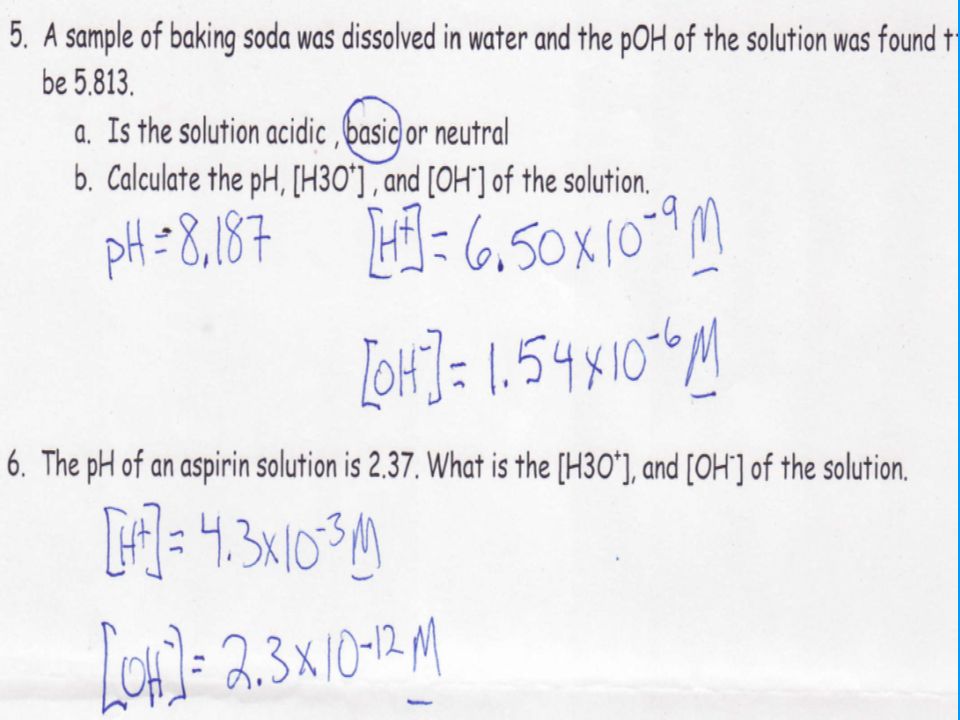 5. A sample of baking soda was dissolved in water and the pOH of the solution was found
be 5.813.
a. Is the solution acidic , basic or neutral
b. Calculate the pH, [H3O⁺] , and [OH⁻] of the solution.
pH = 8.187 [H⁺] = 6.50 x 10⁻⁹ M
[OH⁻] = 1.54 x 10⁻⁶ M
6. The pH of an aspirin solution is 2.37. What is the [H3O⁺], and [OH⁻] of the solution.
[H⁺] = 4.3 x 10⁻³ M
[OH⁻] = 2.3 x 10⁻¹² M